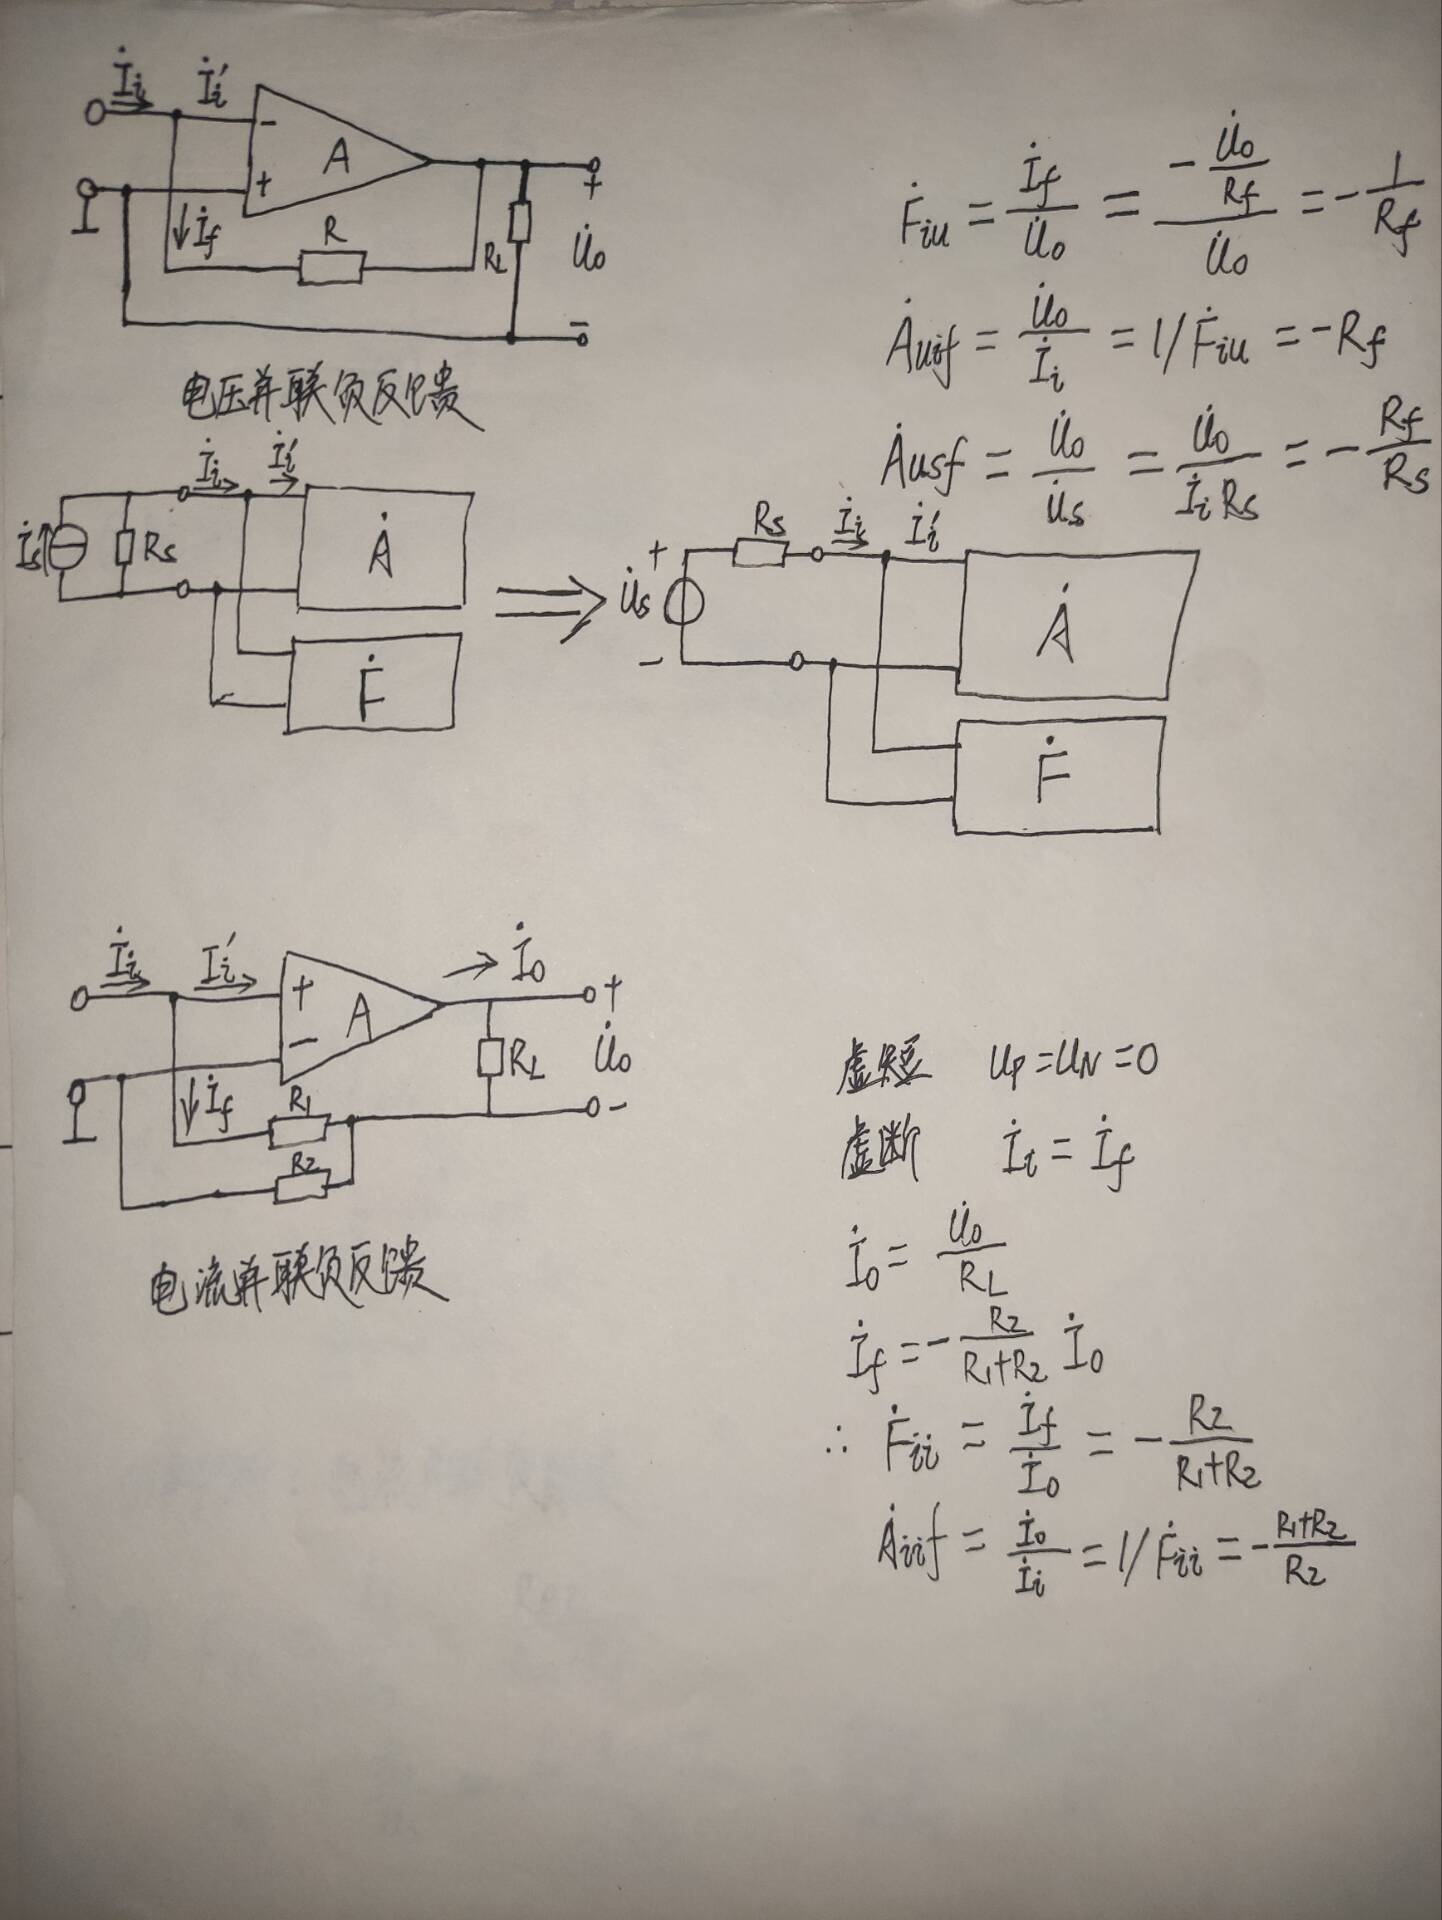 İi İi′
- A +
İf R RL + U̇o -
电压并联负反馈
Ḟiu = İf/U̇o = (-U̇o/Rf)/U̇o = -1/Rf
Ȧuif = U̇o/İi = 1/Ḟiu = -Rf
Ȧusf = U̇o/U̇s = U̇o/(İiRs) = -Rf/Rs
İs Rs İi İi′ Ȧ Ḟ
⇒
U̇s + - Rs İi İi′ Ȧ Ḟ
İi Ii′ + - A → İo
İf R1 R2 RL + U̇o -
电流并联负反馈
虚短 UP=UN=0
虚断 İi = İf
İo = U̇o/RL
İf = -R2/(R1+R2) İo
∴ Ḟii = İf/İo = -R2/(R1+R2)
Ȧiif = İo/İi = 1/Ḟii = -(R1+R2)/R2